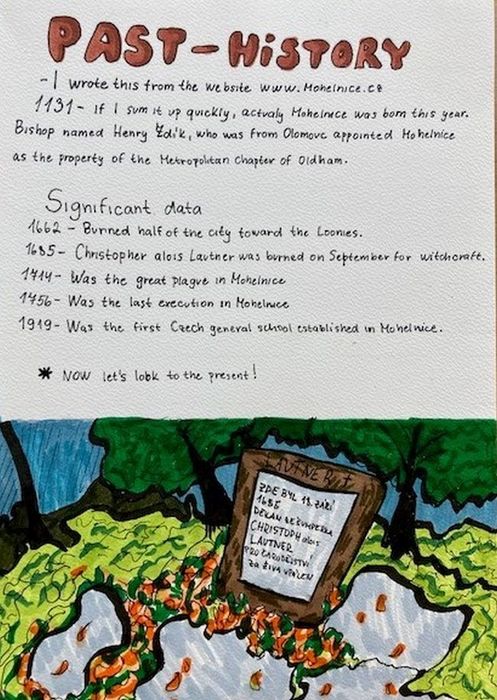 PAST-HISTORY
-I wrote this from the website www.Mohelnice.cz
1131- If I sum it up quickly, actualy Mohelnice was born this year.
Bishop named Henry Zdík, who was from Olomouc appointed Mohelnice
as the property of the Metropolitan Chapter of Oldham.
Significant data
1662- Burned half of the city toward the Loonies.
1685- Christopher alois Lautner was burned on September for witchcraft.
1714- Was the great plague in Mohelnice
1756- Was the last execution in Mohelnice
1919- Was the first Czech general school established in Mohelnice.
* NOW let's look to the present!
LAUTNER
ZDE BYL 18. ZÁŘÍ
1685
DĚKAN ZE ŠUMPERKA
CHRISTOPH alois
LAUTNER
PRO ČARODĚJSTVÍ
ZA ŽIVA UPÁLEN